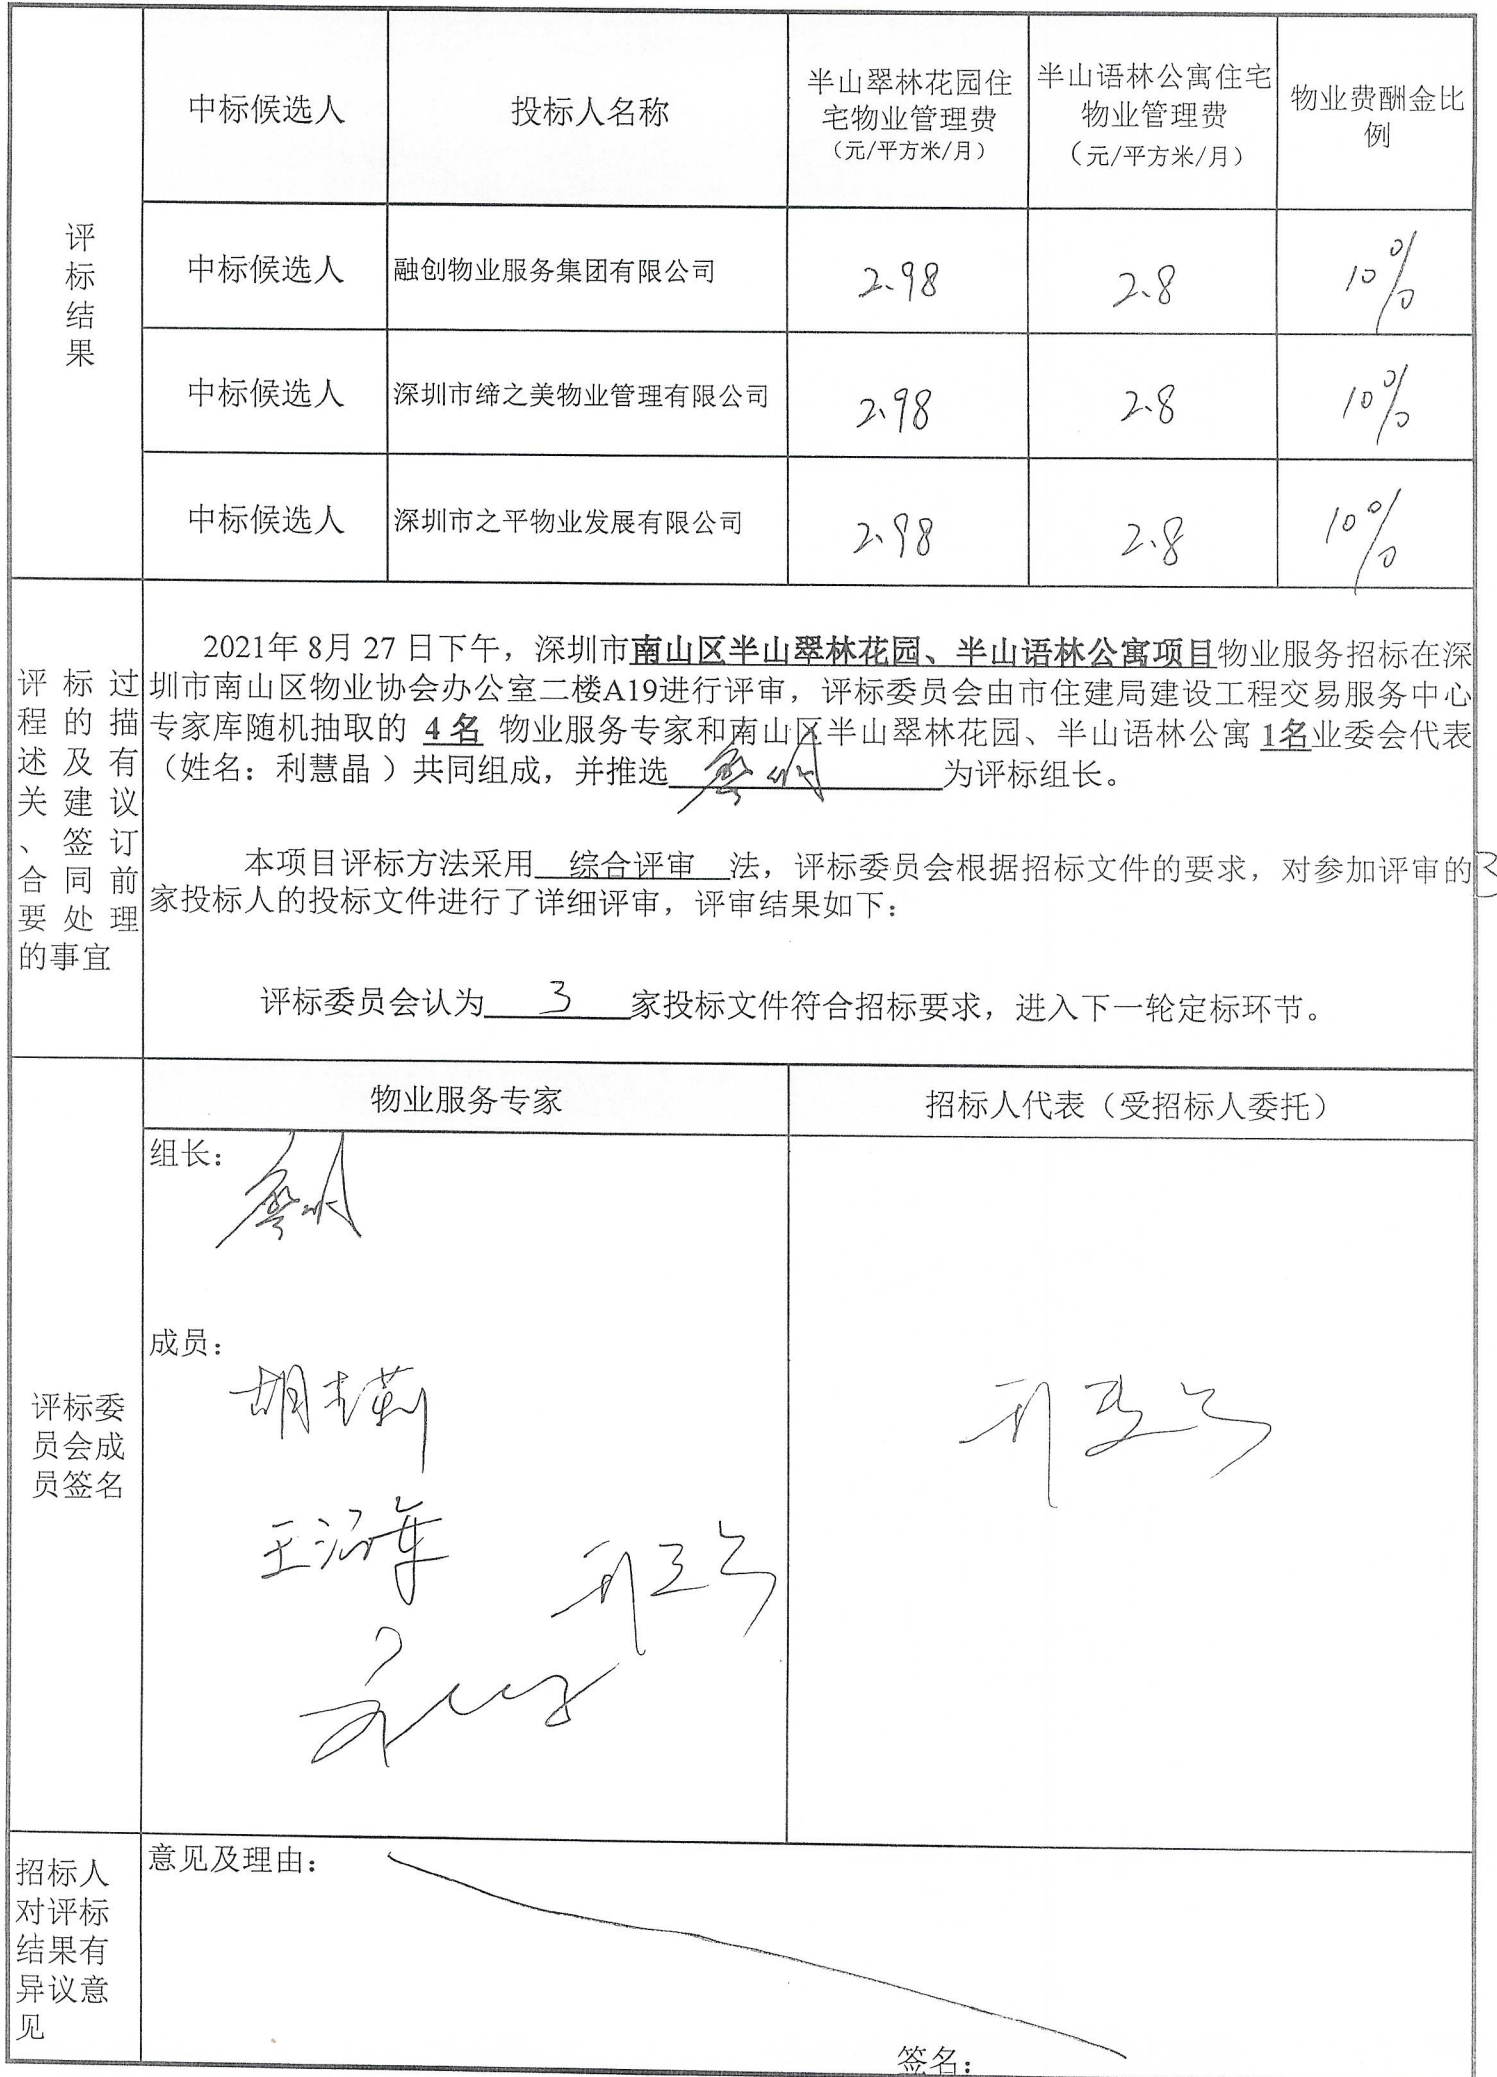 中标候选人 投标人名称 半山翠林花园住 半山语林公寓住宅 物业费酬金比
宅物业管理费 物业管理费 例
（元/平方米/月） （元/平方米/月）
评
标
结
果
中标候选人 融创物业服务集团有限公司 2.98 2.8 10%
中标候选人 深圳市缔之美物业管理有限公司 2.98 2.8 10%
中标候选人 深圳市之平物业发展有限公司 2.98 2.8 10%
评标过
程的描
述及有
关建议
、签订
合同前
要处理
的事宜
2021年 8月 27 日下午，深圳市南山区半山翠林花园、半山语林公寓项目物业服务招标在深
圳市南山区物业协会办公室二楼A19进行评审，评标委员会由市住建局建设工程交易服务中心
专家库随机抽取的 4名 物业服务专家和南山区半山翠林花园、半山语林公寓 1名业委会代表
（姓名：利慧晶 ）共同组成，并推选 为评标组长。
本项目评标方法采用 综合评审 法，评标委员会根据招标文件的要求，对参加评审的3
家投标人的投标文件进行了详细评审，评审结果如下：
评标委员会认为 3 家投标文件符合招标要求，进入下一轮定标环节。
评标委
员会成
员签名
物业服务专家 招标人代表（受招标人委托）
组长：
成员：
招标人
对评标
结果有
异议意
见
意见及理由：
签名：